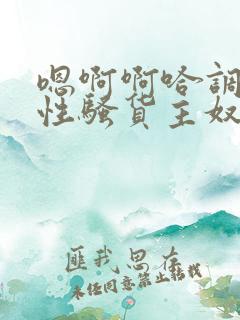 嗯啊啊哈調
性騷货主奴
匪我思存
未经同意禁止转载